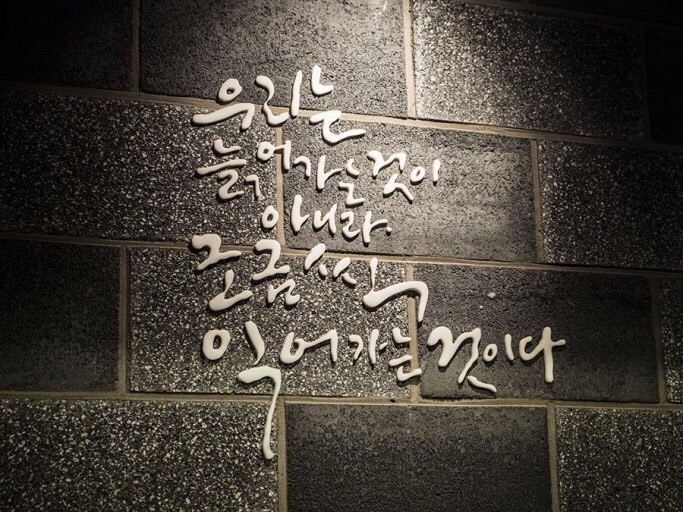 우리는
늙어가는것이
아니라
조금씩
익어가는것이다